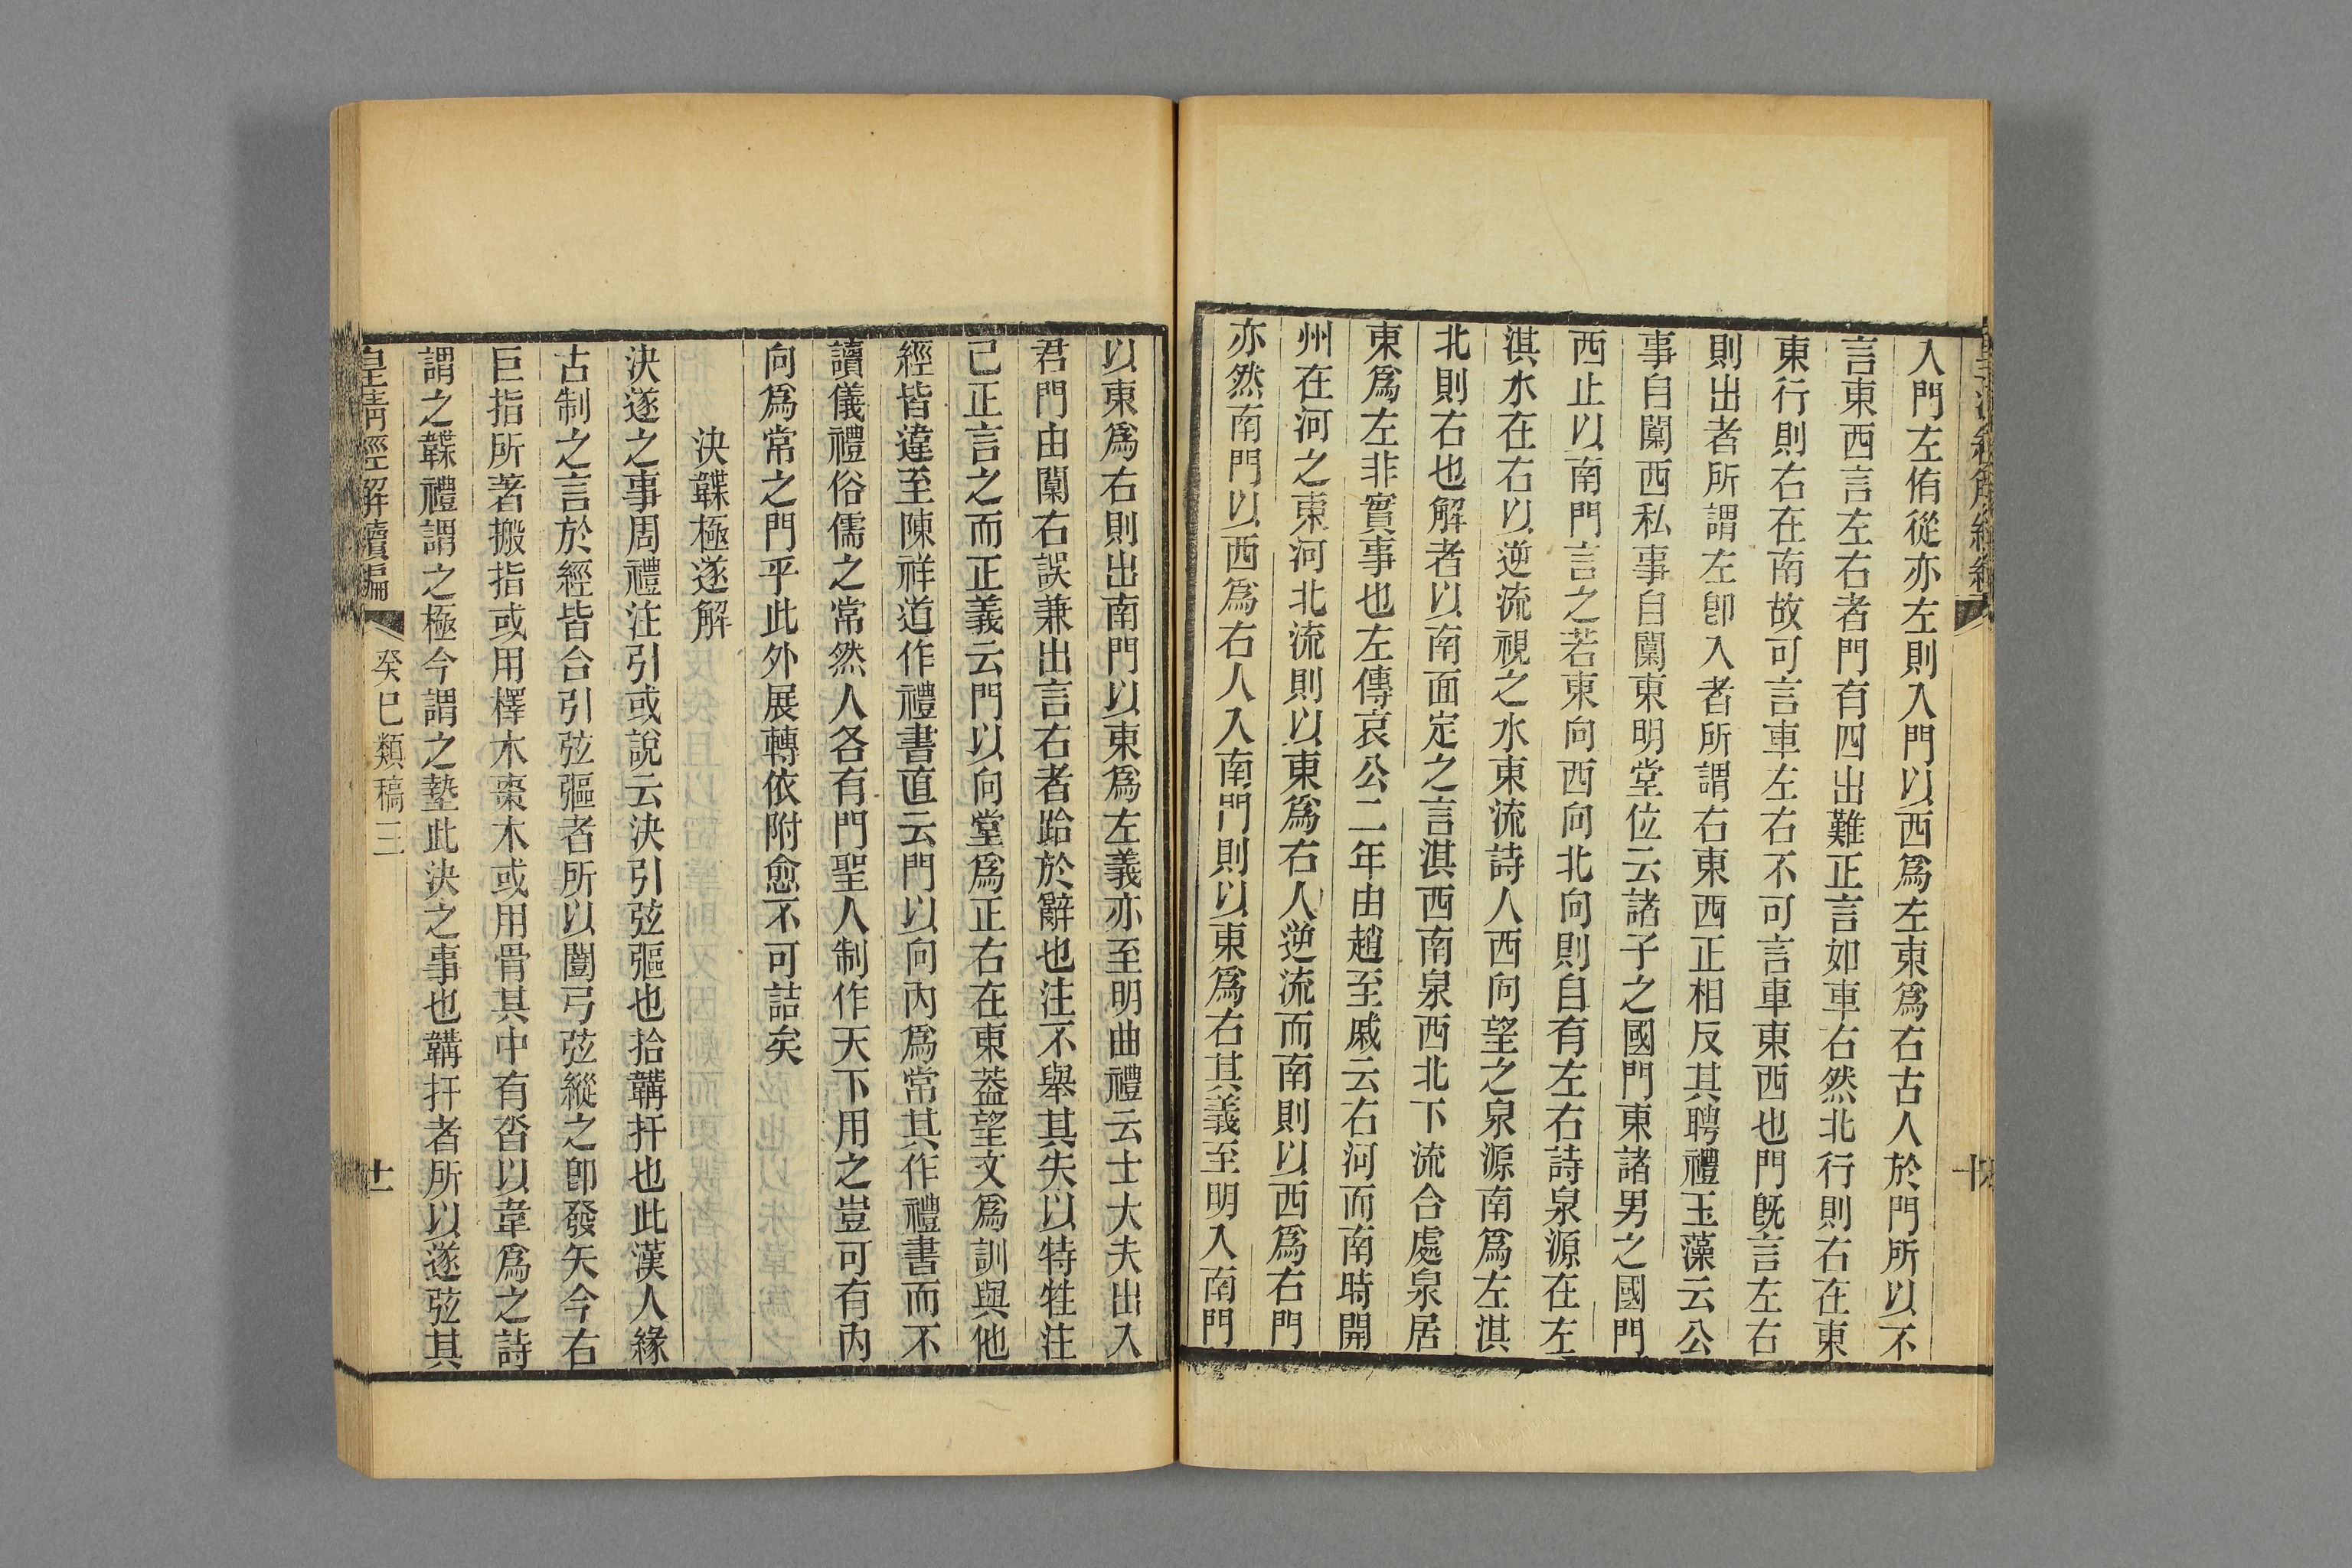 入門左侑從亦左則入門以西爲左東爲右古人於門所以不
言東西言左右者門有四出難正言如車右然北行則右在東
東行則右在南故可言車左右不可言車東西也門旣言左右
則出者所謂左卽入者所謂右東西正相反其聘禮玉藻云公
事自闑西私事自闑東明堂位云諸子之國門東諸男之國門
西止以南門言之若東向西向北向則自有左右詩泉源在左
淇水在右以逆流視之水東流詩人西向望之泉源南爲左淇
北則右也解者以南面定之言淇西南泉西北下流合處泉居
東爲左非實事也左傳哀公二年由趙至戚云右河而南時開
州在河之東河北流則以東爲右人逆流而南則以西爲右門
亦然南門以西爲右人入南門則以東爲右其義至明入南門
以東爲右則出南門以東爲左義亦至明曲禮云士大夫出入
君門由闑右誤兼出言右者跲於辭也注不舉其失以特牲注
己正言之而正義云門以向堂爲正右在東葢望文爲訓與他
經皆違至陳祥道作禮書直云門以向內爲常其作禮書而不
讀儀禮俗儒之常然人各有門聖人制作天下用之豈可有內
向爲常之門乎此外展轉依附愈不可詰矣
決韘極遂解
決遂之事周禮注引或說云決引弦彄也拾韝扞也此漢人緣
古制之言於經皆合引弦彄者所以闓弓弦縱之卽發矢今右
巨指所著搬指或用檡木棗木或用骨其中有沓以韋爲之詩
謂之韘禮謂之極今謂之墊此決之事也韝扞者所以遂弦其
皇清經解續編
癸巳類稿三
十一